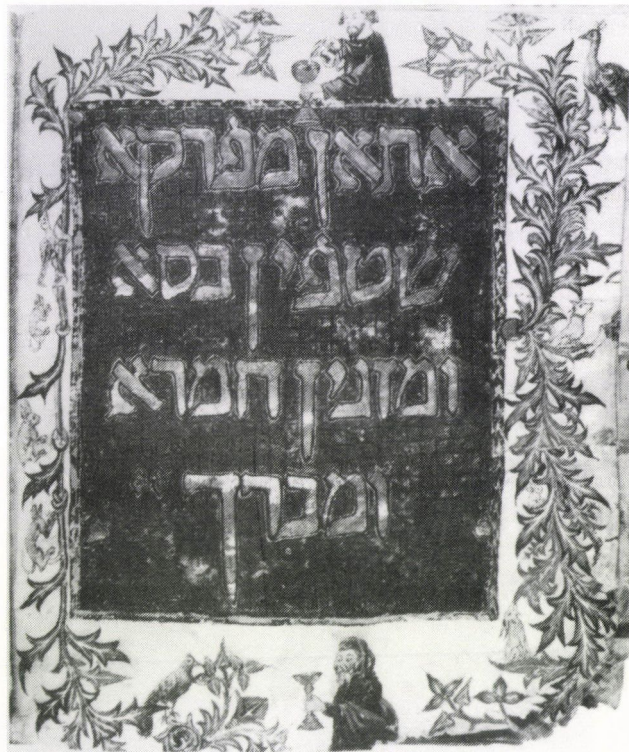 אתאן מפרקא
שטפין כסא
ומזגין חמרא
ומברך